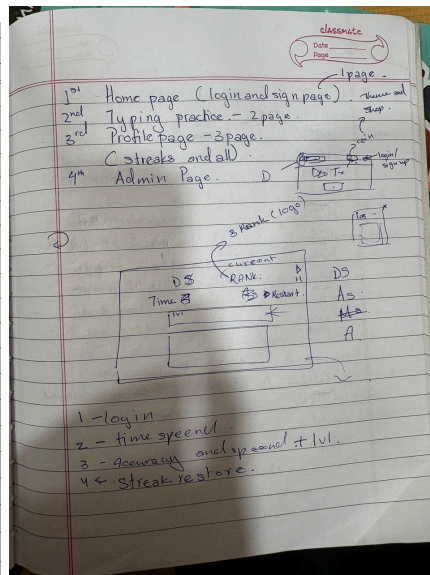 classmate
Date
Page
1 page.
1st Home page (login and sign page).
Theme and shop.
2nd Typing practice. - 2 page.
3rd Profile page - 3 page.
coin
(streaks and all).
login/sign up
4th Admin Page. D
3 Rank (logo)
current
D$ RANK.
DS
Time Restart.
As
lvl
A.
1 - login
2 - time speend.
3 - Accuracy and speend + lvl.
4 ← streak restore.